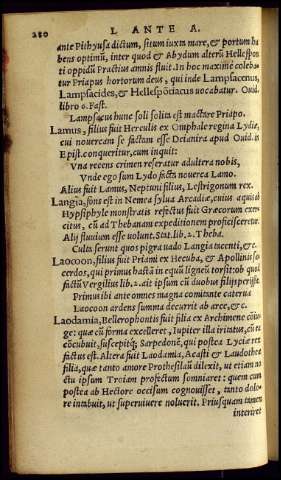 280 L ANTE A.
ante Pithyusa dictum, situm iuxta mare, & portum ha
bens optimũ, inter quod & Abydum alterũ Hellespon
ti oppidũ Practius amnis fluit. In hoc maximè celeba-
tur Priapus hortorum deus, qui inde Lampsacenus,
Lampsacides, & Hellespõtiacus uocabatur. Ouid.
libro 6. Fast.
Lampsacus hunc soli solita est mactare Priapo.
Lamus, filius fuit Herculis ex Omphale regina Lydiæ,
cui nouercam se factam esse Deianira apud Ouid. in
Epist. conqueritur, cum inquit:
Vna recens crimen reseratur adultera nobis,
Vnde ego sum Lydo facta nouerca Lamo.
Alius fuit Lamus, Neptuni filius, Lestrigonum rex.
Langia, fons est in Nemea sylua Arcadiæ, cuius aquis ab
Hypsiphyle monstratis refectus fuit Græcorum exer-
citus, cũ ad Thebanam expeditionem proficisceretur.
Alij fluuium esse uolunt. Stat. lib. 2. Theba.
Culta serunt quos pigra uado Langia tacenti, &c.
Laocoon, filius fuit Priami ex Hecuba, & Apollinis sa-
cerdos, qui primus hastã in equũ ligneũ torsit: ob quod
factũ Vergilius lib. 2. ait ipsum cũ duobus filijs perisse.
Primus ibi ante omnes magna comitante caterua
Laocoon ardens summa decurrit ab arce, &c.
Laodamia, Bellerophontis fuit filia ex Archimene cõiu-
ge: quæ cũ forma excelleret, Iupiter illa irritatus, cũ ea
cõcubuit, suscepitq; Sarpedonẽ, qui postea Lyciæ rex
factus est. Altera fuit Laodamia, Acasti & Laudotheæ
filia, quæ tanto amore Prothesilaũ dilexit, ut etiam no
ctu ipsum Troiam profectum somniaret: quem cum
postea ab Hectore occisum cognouisset, tanto dolo-
re intabuit, ut superuiuere noluerit. Priusquam tamen
interiret